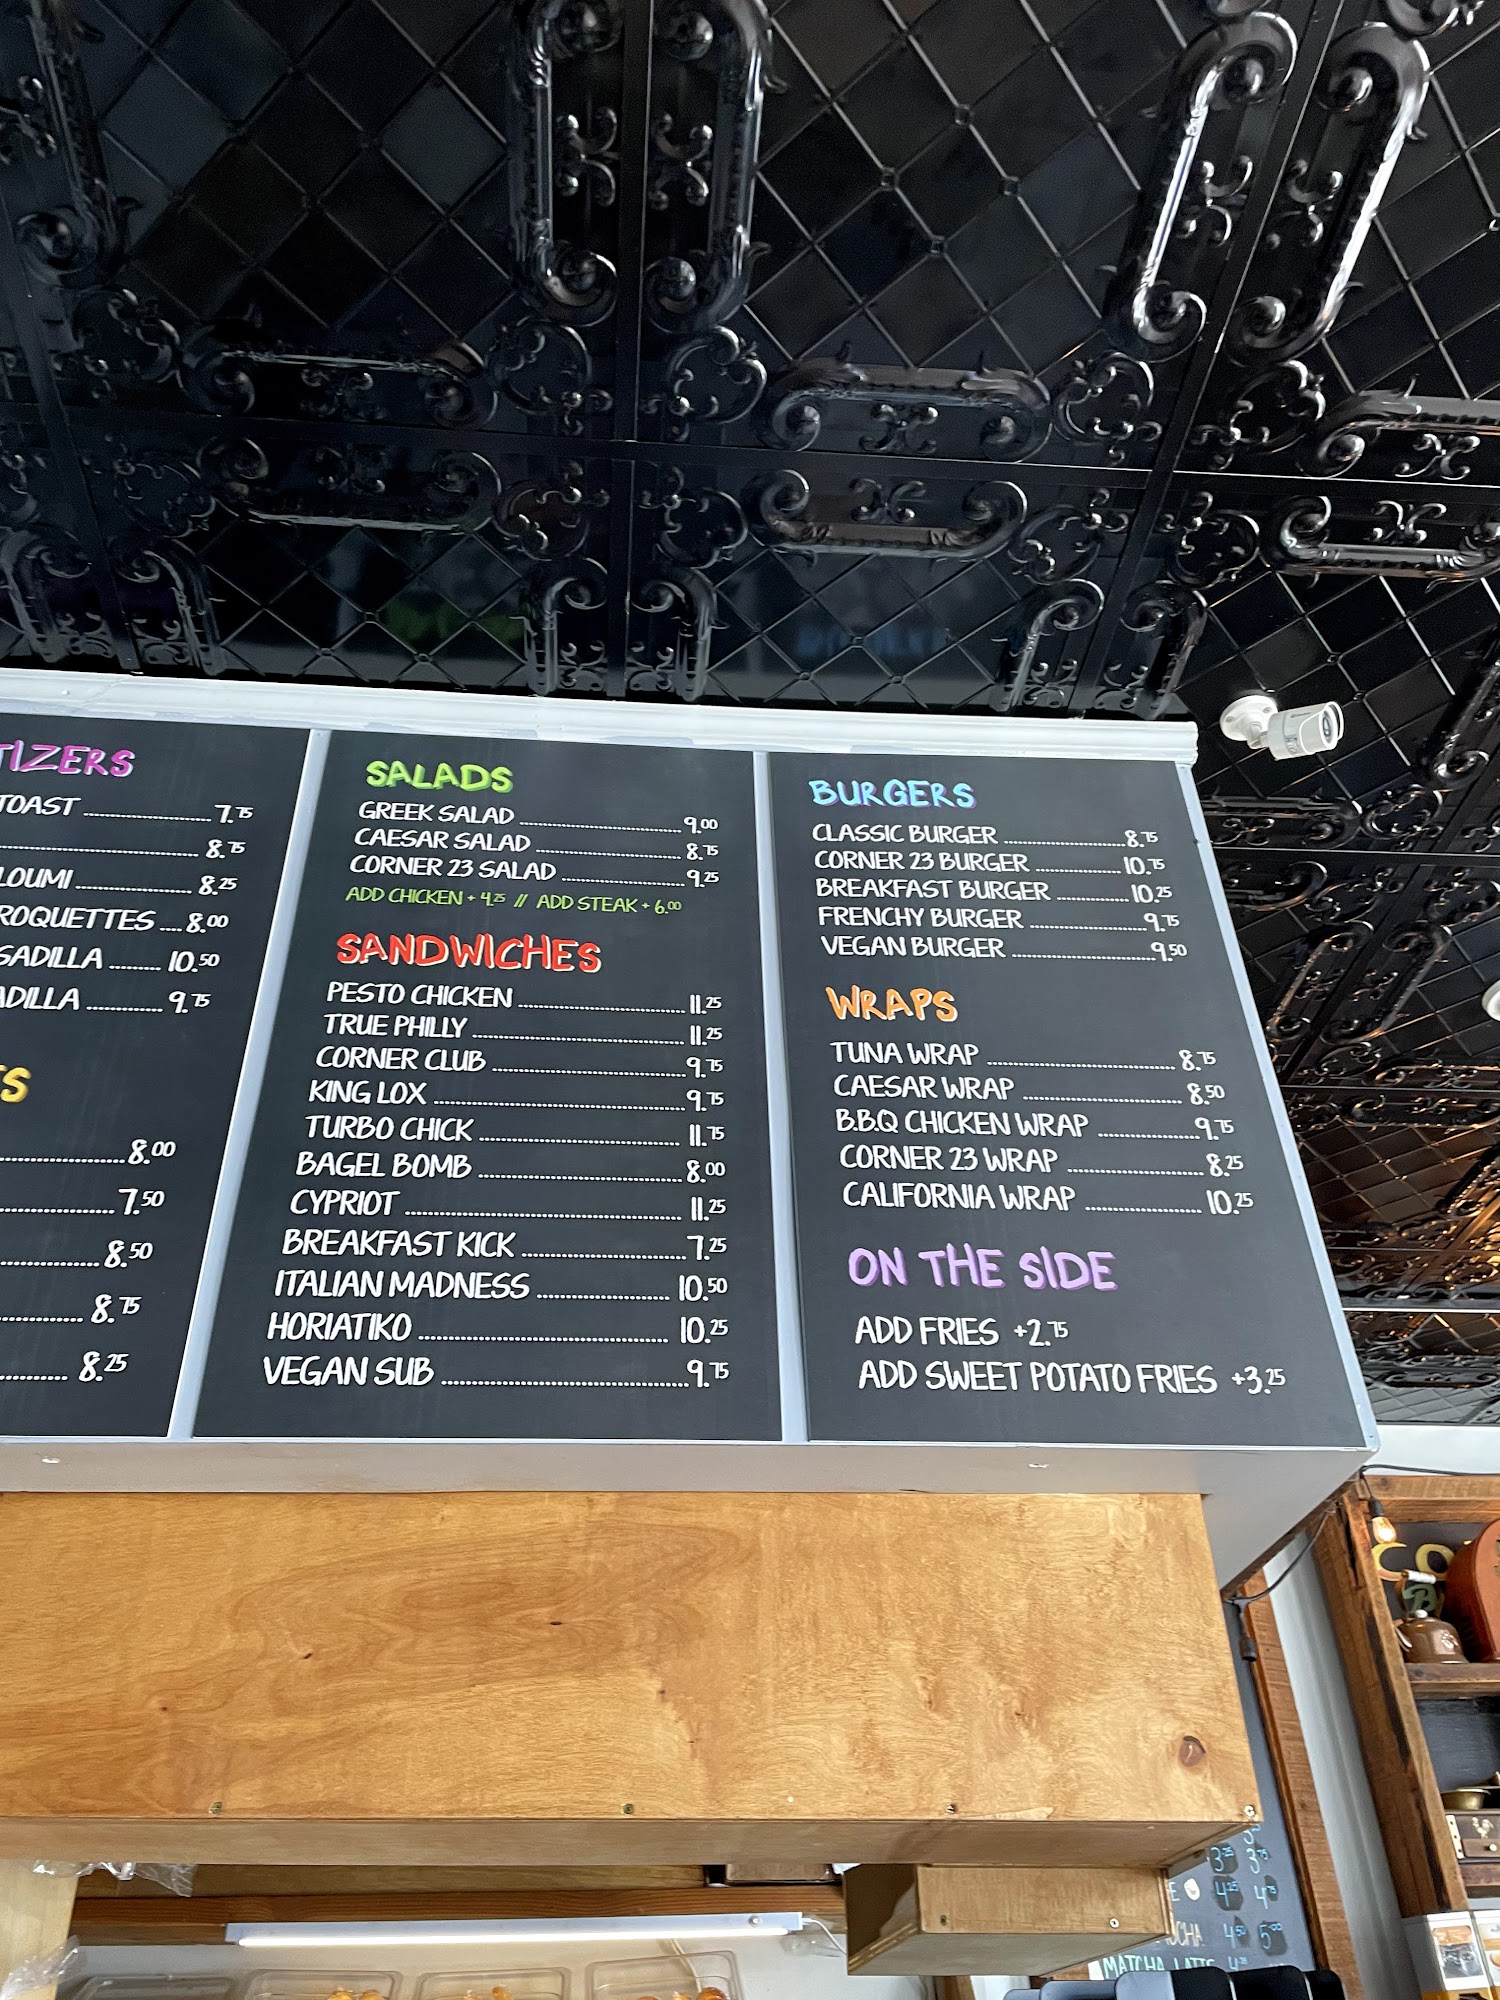 TIZERS
TOAST 7.75
8.75
LOUMI 8.25
ROQUETTES 8.00
SADILLA 10.50
ADILLA 9.75
S
8.00
7.50
8.50
8.75
8.25
SALADS
GREEK SALAD 9.00
CAESAR SALAD 8.75
CORNER 23 SALAD 9.25
ADD CHICKEN + 4.25 // ADD STEAK + 6.00
SANDWICHES
PESTO CHICKEN 11.25
TRUE PHILLY 11.25
CORNER CLUB 9.75
KING LOX 9.75
TURBO CHICK 11.75
BAGEL BOMB 8.00
CYPRIOT 11.25
BREAKFAST KICK 7.25
ITALIAN MADNESS 10.50
HORIATIKO 10.25
VEGAN SUB 9.75
BURGERS
CLASSIC BURGER 8.75
CORNER 23 BURGER 10.75
BREAKFAST BURGER 10.25
FRENCHY BURGER 9.75
VEGAN BURGER 9.50
WRAPS
TUNA WRAP 8.75
CAESAR WRAP 8.50
B.B.Q CHICKEN WRAP 9.75
CORNER 23 WRAP 8.25
CALIFORNIA WRAP 10.25
ON THE SIDE
ADD FRIES +2.75
ADD SWEET POTATO FRIES +3.25
CO
E 4.25 4.75
OCHA 4.50 5.00
MATCHA LATTE